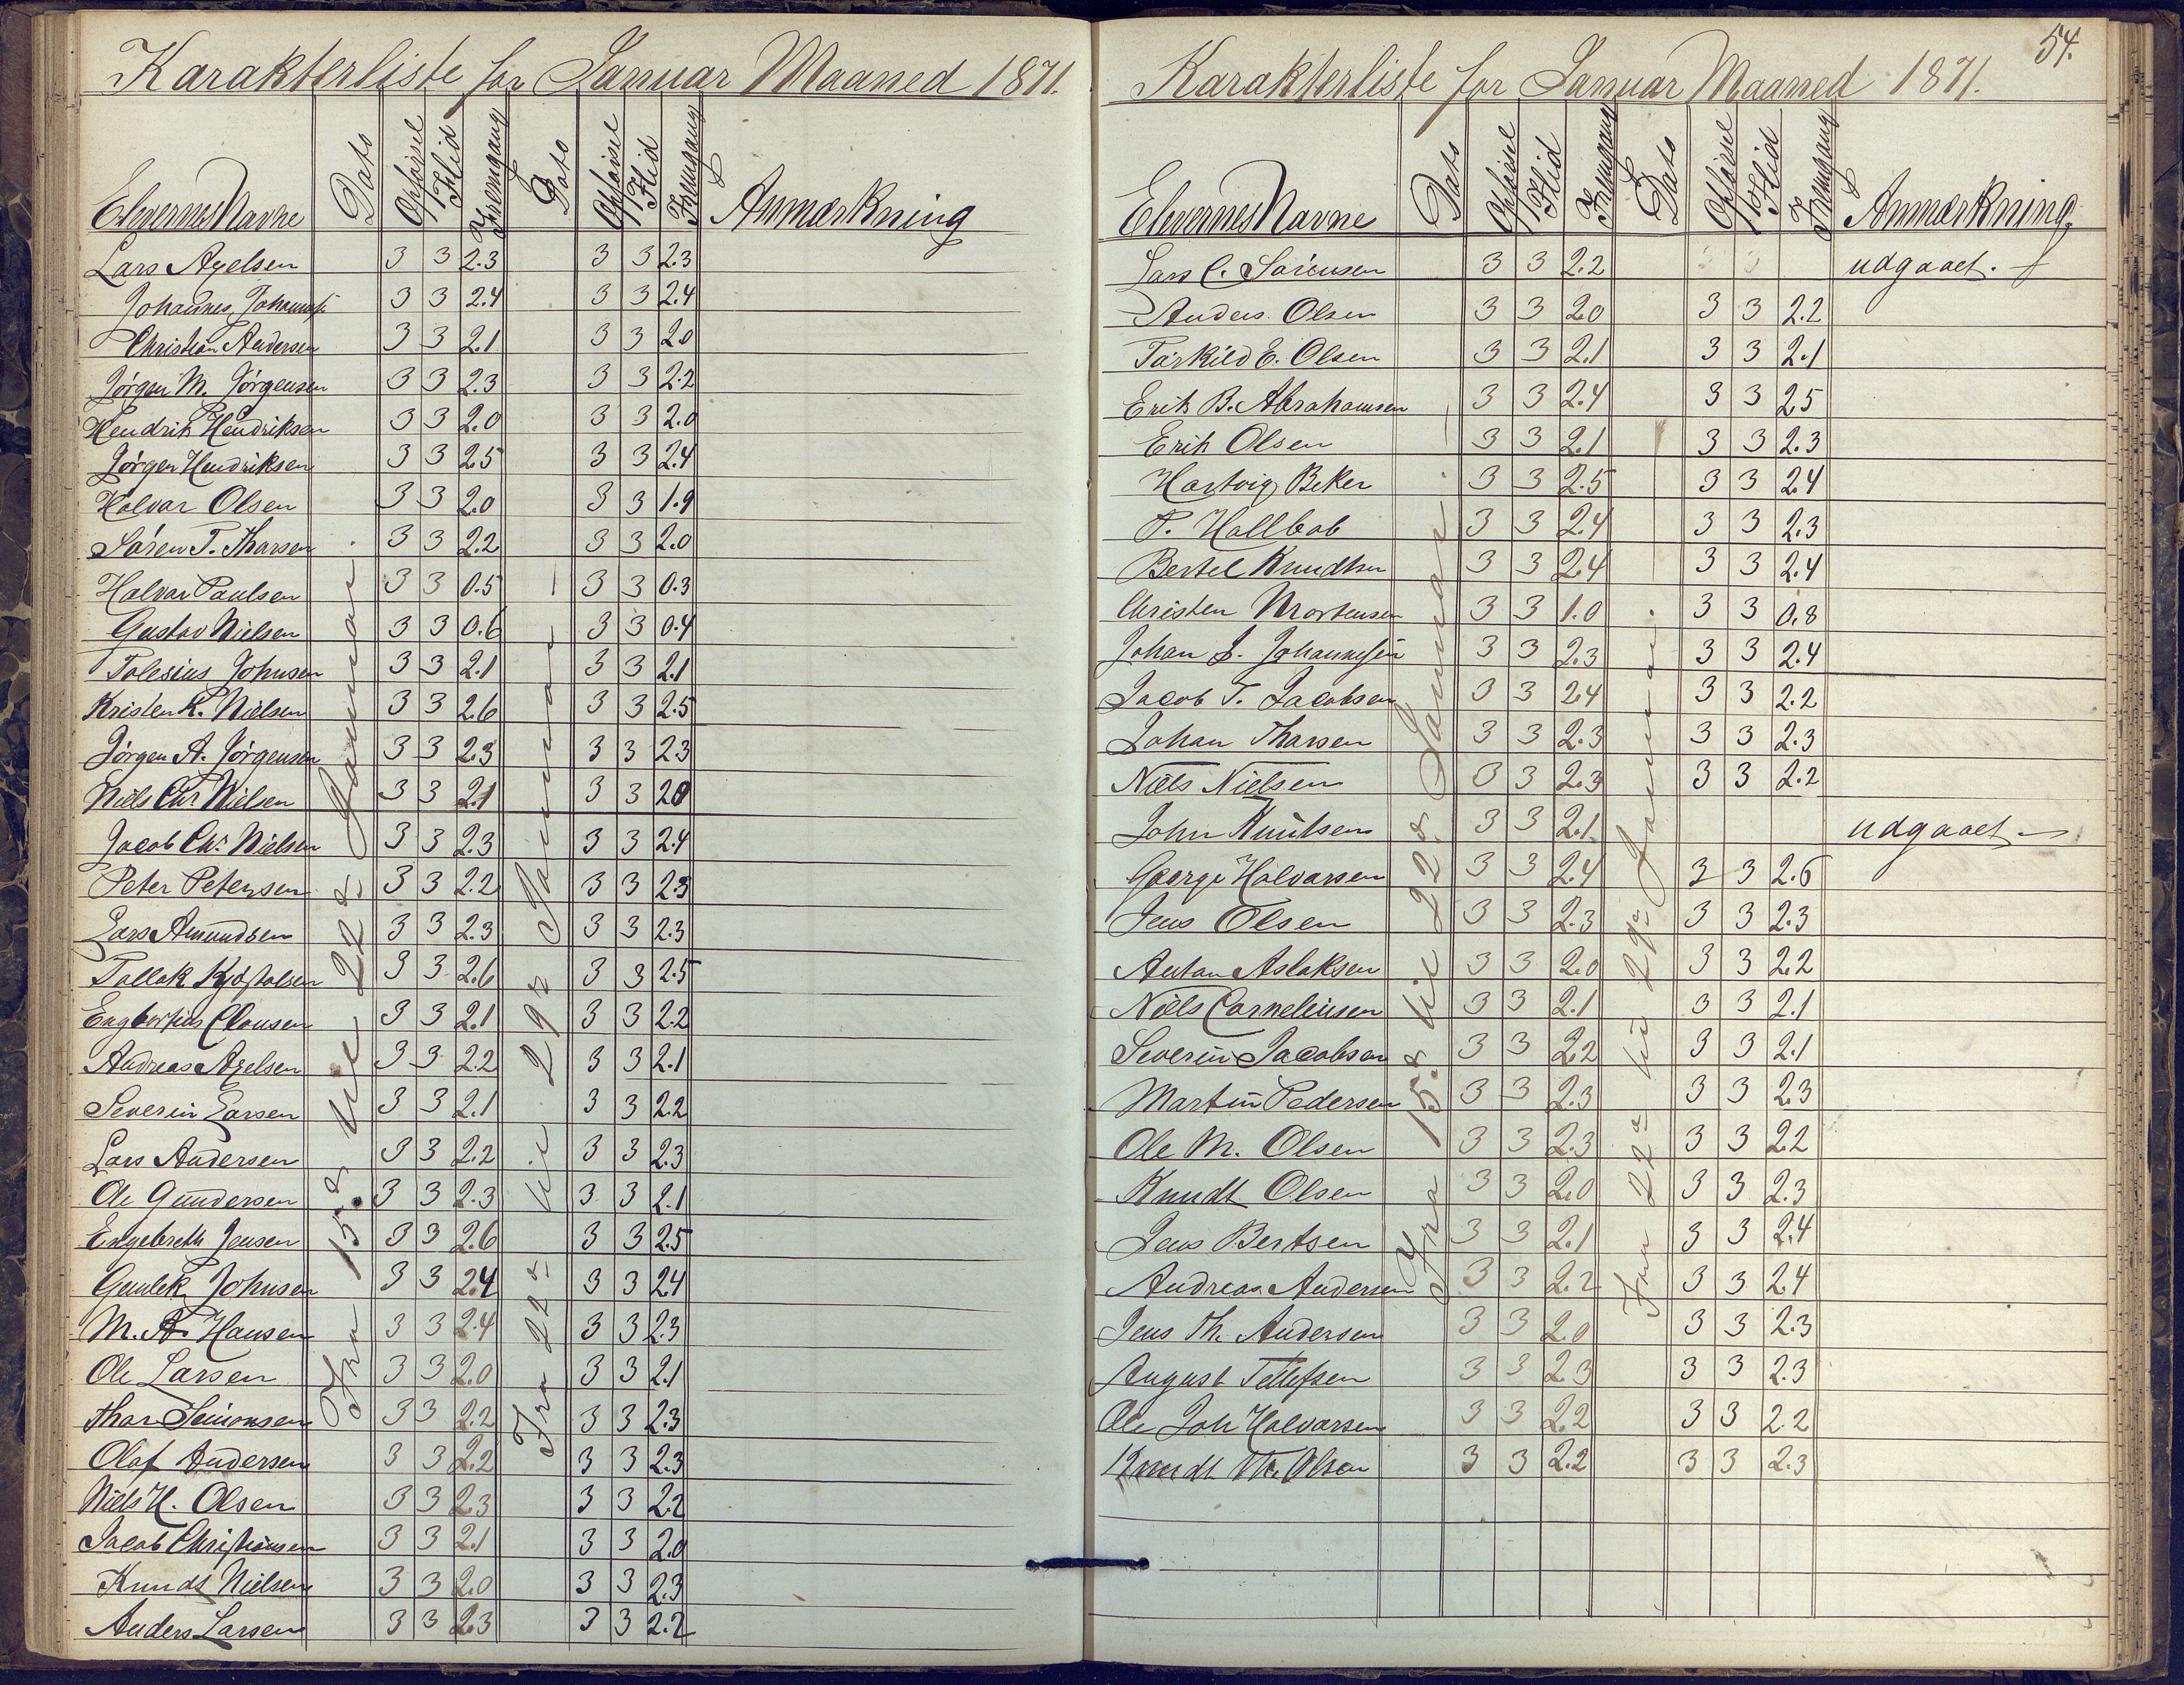 Karakterliste for Januar Maaned 1871.
Elevernes Navne Dato Opførsel Flid Fremgang Dato Opførsel Flid Fremgang Anmærkning
Fra 15de til 22de Januar.
Fra 22de til 29de Januar
Lars Axelsen 3 3 2.3 3 3 2.3
Johannes Johannesen 3 3 2.4 3 3 2.4
Christian Andersen 3 3 2.1 3 3 2.0
Jørgen M. Jørgensen 3 3 2.3 3 3 2.2
Hendrik Hendriksen 3 3 2.0 3 3 2.0
Jørgen Hendriksen 3 3 2.5 3 3 2.4
Halvar Olsen 3 3 2.0 3 3 1.9
Søren T. Tharsen 3 3 2.2 3 3 2.0
Halvar Paulsen 3 3 0.5 3 3 0.3
Gustav Nielsen 3 3 0.6 3 3 0.4
Tolesius Johnsen 3 3 2.1 3 3 2.1
Kristen R. Nielsen 3 3 2.6 3 3 2.5
Jørgen A. Jørgensen 3 3 2.3 3 3 2.3
Niels Chr Nielsen 3 3 2.1 3 3 2.0
Jacob Chr. Nielsen 3 3 2.3 3 3 2.4
Peter Petersen 3 3 2.2 3 3 2.3
Lars Amundsen 3 3 2.3 3 3 2.3
Tallak Kjøstolsen 3 3 2.6 3 3 2.5
Engbertus Clausen 3 3 2.1 3 3 2.2
Andreas Axelsen 3 3 2.2 3 3 2.1
Severin Larsen 3 3 2.1 3 3 2.2
Lars Andersen 3 3 2.2 3 3 2.3
Ole Gundersen 3 3 2.3 3 3 2.1
Engebreth Jensen 3 3 2.6 3 3 2.5
Gunlek Johnsen 3 3 2.4 3 3 2.4
M. A. Hansen 3 3 2.4 3 3 2.3
Ole Larsen 3 3 2.0 3 3 2.1
Thar Simonsen 3 3 2.2 3 3 2.3
Olaf Andersen 3 3 2.2 3 3 2.3
Niels H. Olsen 3 3 2.3 3 3 2.2
Jacob Christiansen 3 3 2.1 3 3 2.0
Knudt Nielsen 3 3 2.0 3 3 2.3
Anders Larsen 3 3 2.3 3 3 2.2
54.
Karakterliste for Januar Maaned 1871.
Elevernes Navne Dato Opførsel Flid Fremgang Dato Opførsel Flid Fremgang Anmærkning
Fra 15de til 22de Januar.
Fra 22de til 29de Januar.
Lars C. Sørensen 3 3 2.2 udgaaet.
Anders Olsen 3 3 2.0 3 3 2.2
Tarkild E. Olsen 3 3 2.1 3 3 2.1
Erik B. Abrahamsen 3 3 2.4 3 3 2.5
Erik Olsen 3 3 2.1 3 3 2.3
Hartvig Beker 3 3 2.5 3 3 2.4
P. Hallbob 3 3 2.4 3 3 2.3
Bertel Knudtsen 3 3 2.4 3 3 2.4
Christen Mortensen 3 3 1.0 3 3 0.8
Johan J. Johannesen 3 3 2.3 3 3 2.4
Jacob T. Jacobsen 3 3 2.4 3 3 2.2
Johan Tharsen 3 3 2.3 3 3 2.3
Niels Nielsen 3 3 2.3 3 3 2.2
John Knutsen 3 3 2.1 udgaaet
George Halvarsen 3 3 2.4 3 3 2.6
Jens Olsen 3 3 2.3 3 3 2.3
Anton Aslaksen 3 3 2.0 3 3 2.2
Niels Corneliusen 3 3 2.1 3 3 2.1
Severin Jacobsen 3 3 2.2 3 3 2.1
Martin Pedersen 3 3 2.3 3 3 2.3
Ole M. Olsen 3 3 2.3 3 3 2.2
Knudt Olsen 3 3 2.0 3 3 2.3
Jens Bertsen 3 3 2.1 3 3 2.4
Andreas Andersen 3 3 2.2 3 3 2.4
Jens Th. Andersen 3 3 2.0 3 3 2.3
August Tellefsen 3 3 2.3 3 3 2.3
Ole Joh Halvarsen 3 3 2.2 3 3 2.2
Knudt Th. Olsen 3 3 2.2 3 3 2.3